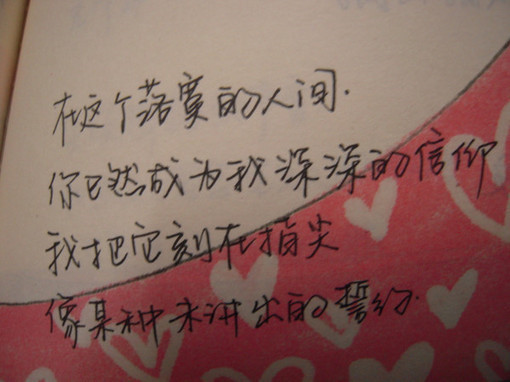 在这个落寞的人间.
你已然成为我深深的信仰
我把它刻在指尖
像某种未讲出的誓约.